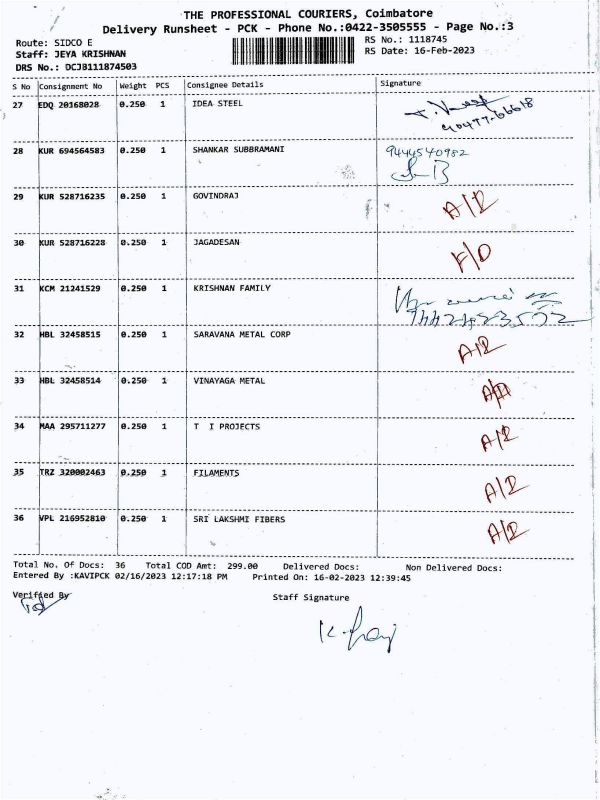 THE PROFESSIONAL COURIERS, Coimbatore
Delivery Runsheet - PCK - Phone No.:0422-3505555 - Page No.:3
Route: SIDCO E
RS No.: 1118745
Staff: JEYA KRISHNAN
RS Date: 16-Feb-2023
DRS No.: DCJB111874503
S No Consignment No Weight PCS Consignee Details Signature
27 EDQ 20168028 0.250 1 IDEA STEEL
28 KUR 694564583 0.250 1 SHANKAR SUBBRAMANI 9444540982
29 KUR 528716235 0.250 1 GOVINDRAJ A/R
30 KUR 528716228 0.250 1 JAGADESAN F/D
31 KCM 21241529 0.250 1 KRISHNAN FAMILY
32 HBL 32458515 0.250 1 SARAVANA METAL CORP A/R
33 HBL 32458514 0.250 1 VINAYAGA METAL
34 MAA 295711277 0.250 1 T I PROJECTS A/R
35 TRZ 320002463 0.250 1 FILAMENTS A/R
36 VPL 216952810 0.250 1 SRI LAKSHMI FIBERS A/R
Total No. Of Docs: 36 Total COD Amt: 299.00 Delivered Docs: Non Delivered Docs:
Entered By :KAVIPCK 02/16/2023 12:17:18 PM Printed On: 16-02-2023 12:39:45
Verified By Staff Signature